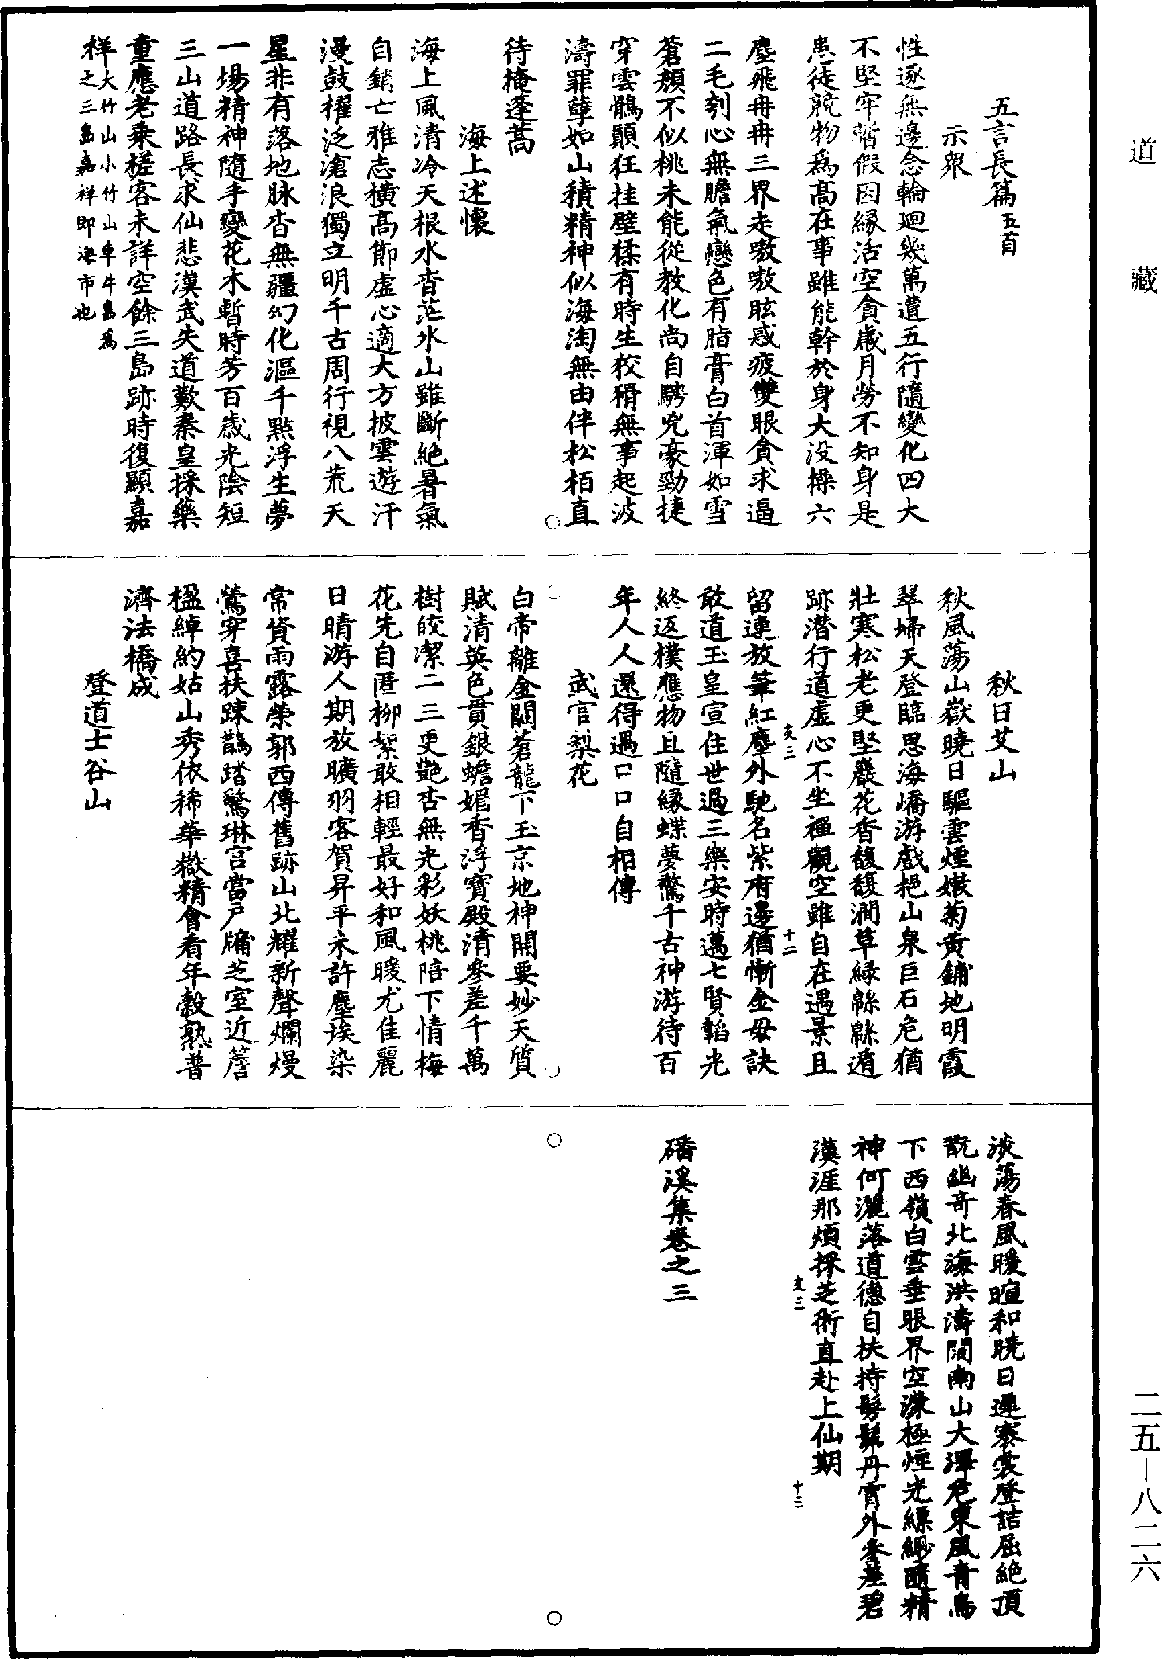 道藏
五言長篇五首
示衆
性逐無邊念輪迴幾萬遭五行隨變化四大
不堅牢暫假因緣活空貪歲月勞不知身是
患徒競物爲高在事雖能幹於身大没操六
塵飛冉冉三界走嗷嗷眩惑疲雙眼貪求逼
二毛刳心無膽氣戀色有脂膏白首渾如雪
蒼顏不似桃未能從教化尚自騁兇豪勁捷
穿雲鶻顛狂挂壁猱有時生狡猾無事起波
濤罪孽如山積精神似海淘無由伴松栢直
待掩蓬蒿
海上述懷
海上風清冷天根水杳茫氷山雖斷絕暑氣
自銷亡雅志橫高節虛心適大方披雲遊汗
漫鼓櫂泛滄浪獨立明千古周行視八荒天
星非有落地脉杳無疆幻化漚千點浮生夢
一場精神隨手變花木暫時芳百歲光陰短
三山道路長求仙悲漢武失道歎秦皇採藥
童應老乘槎客未詳空餘三島跡時復顯嘉
祥大竹山小竹山車牛島爲
之三島嘉祥即海市也
秋日艾山
秋風蕩山嶽曉日驅雲煙嫩菊黃鋪地明霞
翠埽天登臨思海嶠游戲挹山泉巨石危猶
壯寒松老更堅巖花香馥馥澗草緑緜緜遁
跡潛行道虛心不坐禪觀空雖自在遇景且
留連放筆紅塵外馳名紫府邊猶慚金母訣
敢道玉皇宣住世過三樂安時邁七賢韜光
終返樸應物且隨緣蝶夢驚千古神游待百
年人人還得過口口自相傳
武官梨花
白帝離金闕蒼龍下玉京地神開要妙天質
賦清英色貫銀蟾媚香浮寶殿清參差千萬
樹皎潔二三更艷杏無光彩妖桃陪下情梅
花先自匿柳絮敢相輕最好和風暖尤佳麗
日晴游人期放曠羽客賀昇平未許塵埃染
常貸雨露榮郭西傳舊跡山北耀新聲爛熳
鶯穿喜扶踈鵲踏驚琳宮當戶牖芝室近簷
楹綽約姑山秀依稀華嶽精會看年穀熟普
濟法橋成
登道士谷山
淡蕩春風暖暄和曉日遲褰裳登詰屈絕頂
翫幽奇北海洪濤闊南山大澤危東風青鳥
下西嶺白雲垂眼界空濛極煙光縹緲隨精
神何灑落道德自扶持髣髴丹霄外參差碧
漢涯那煩採芝術直赴上仙期
磻溪集卷之三
支二
十二
支三
十三
二五—八二六